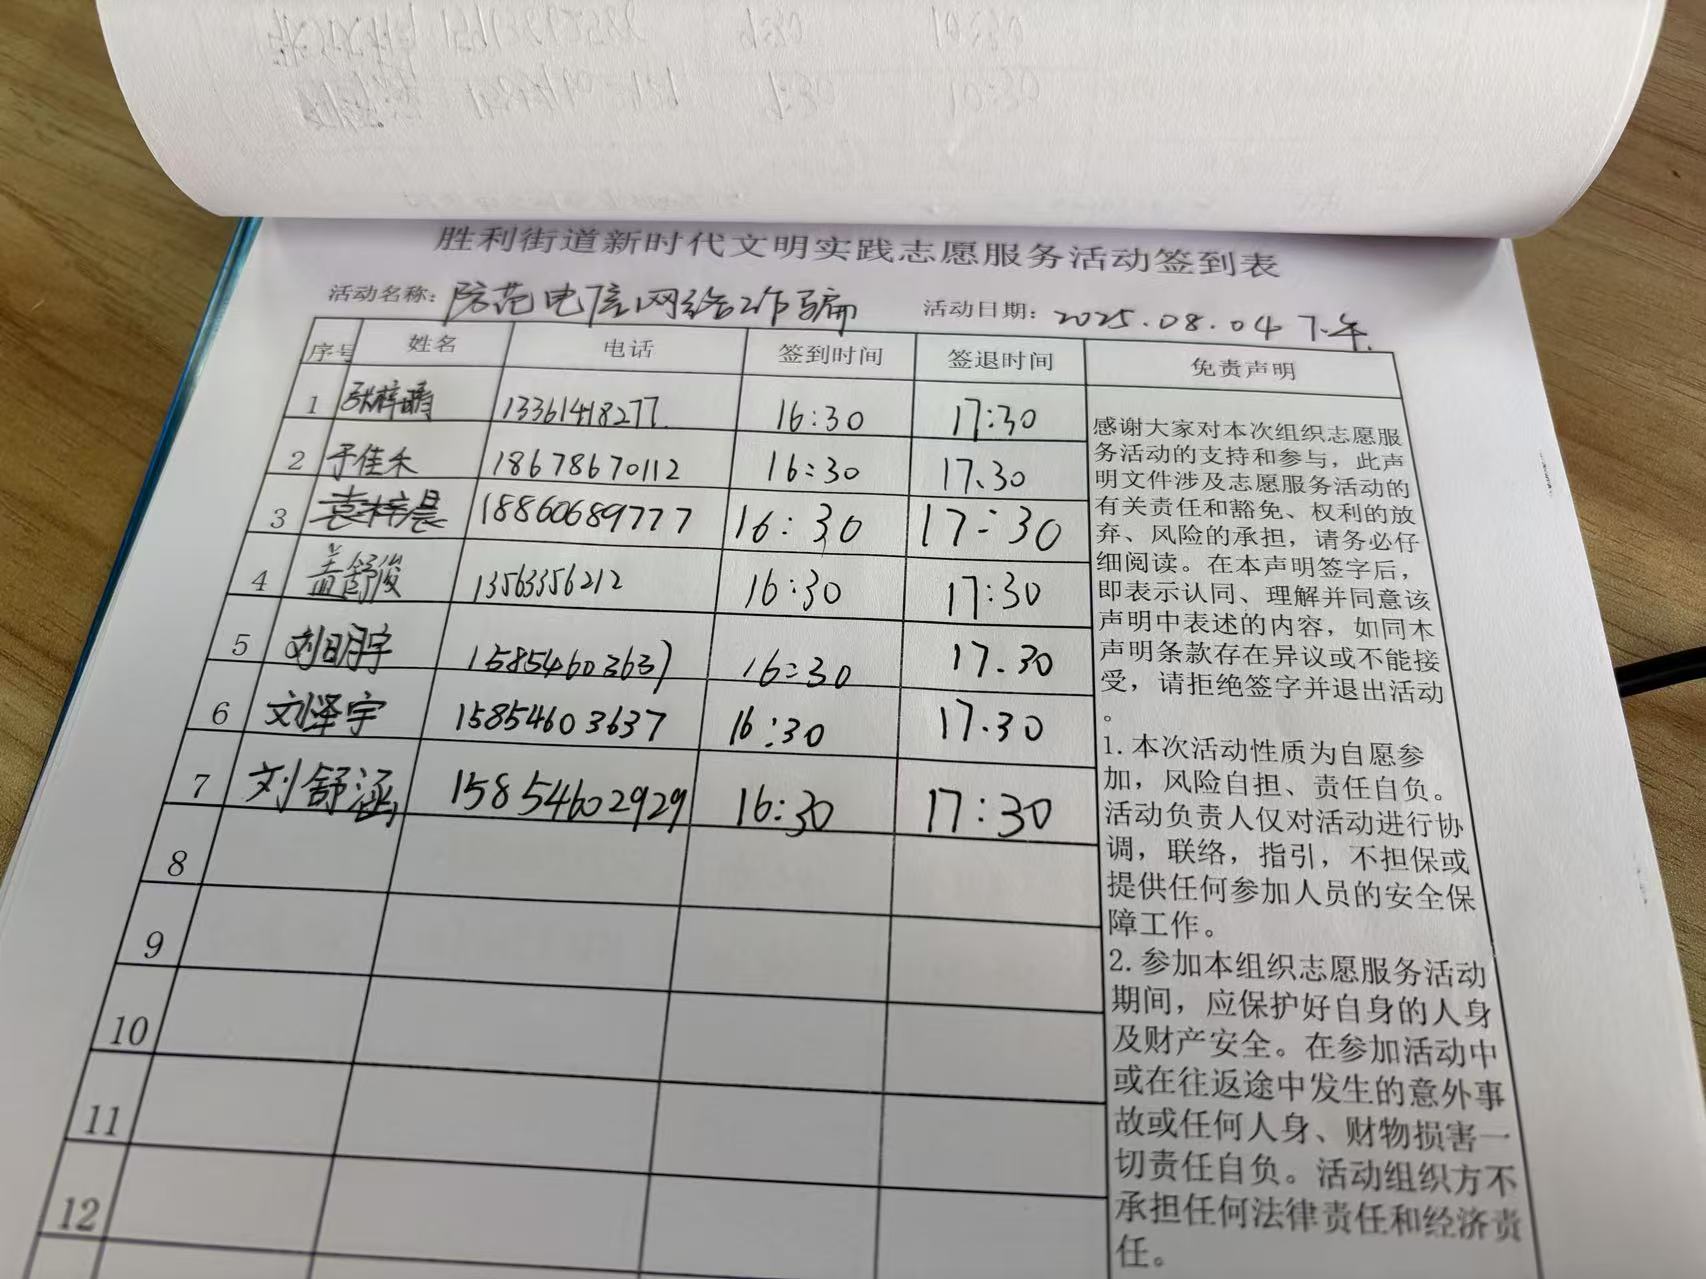 胜利街道新时代文明实践志愿服务活动签到表
活动名称：防范电信网络诈骗 活动日期：2025.08.04 下午
序号 姓名 电话 签到时间 签退时间 免责声明
1 张梓晴 13361418277 16:30 17:30
2 于佳禾 18678670112 16:30 17.30
3 袁梓晨 18860689777 16:30 17:30
4 盖舒俊 13563356212 16:30 17:30
5 刘明宇 15854603637 16:30 17.30
6 刘泽宇 15854603637 16:30 17.30
7 刘舒涵 15854602929 16:30 17:30
8
9
10
11
12
感谢大家对本次组织志愿服
务活动的支持和参与，此声
明文件涉及志愿服务活动的
有关责任和豁免、权利的放
弃、风险的承担，请务必仔
细阅读。在本声明签字后，
即表示认同、理解并同意该
声明中表述的内容，如同本
声明条款存在异议或不能接
受，请拒绝签字并退出活动
。
1.本次活动性质为自愿参
加，风险自担、责任自负。
活动负责人仅对活动进行协
调，联络，指引，不担保或
提供任何参加人员的安全保
障工作。
2.参加本组织志愿服务活动
期间，应保护好自身的人身
及财产安全。在参加活动中
或在往返途中发生的意外事
故或任何人身、财物损害一
切责任自负。活动组织方不
承担任何法律责任和经济责
任。